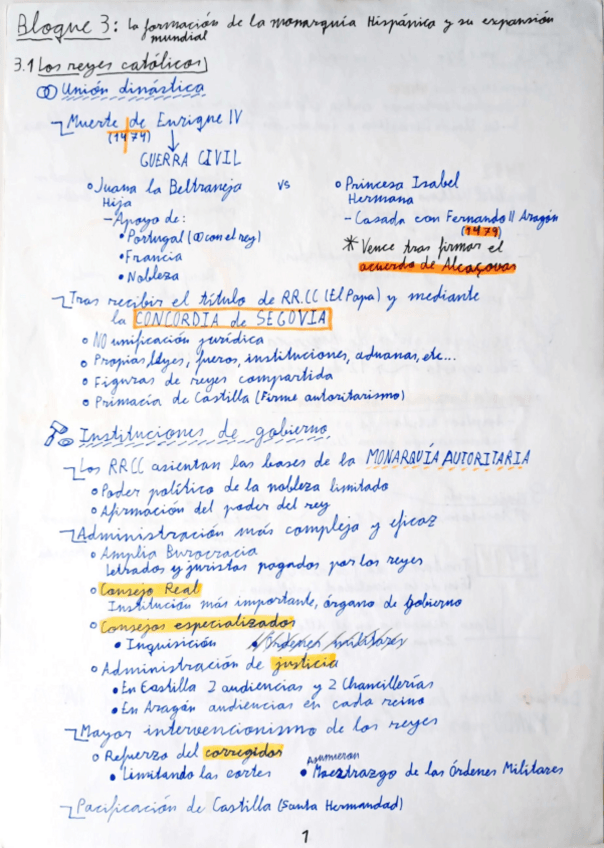 Bloque 3: la formación de la monarquía Hispánica y su expansión
mundial
3.1 Los reyes católicos
Unión dinástica
Muerte de Enrique IV
(1474)
GUERRA CIVIL
Juana la Beltraneja vs Princesa Isabel
Hija Hermana
- Apoyo de: - Casada con Fernando II Aragón
(1479)
• Portugal (con el rey) * Vence tras firmar el
• Francia acuerdo de Alcaçovas
• Nobleza
Tras recibir el título de RR.CC (El Papa) y mediante
la CONCORDIA de SEGOVIA
NO unificación jurídica
Propias leyes, fueros, instituciones, aduanas, etc...
Figuras de reyes compartida
Primacía de Castilla (Firme autoritarismo)
Instituciones de gobierno
Los RRCC asientan las bases de la MONARQUÍA AUTORITARIA
Poder político de la nobleza limitado
Afirmación del poder del rey
Administración más compleja y eficaz
Amplia Burocracia
Letrados y juristas pagados por los reyes
Consejo Real
Institución más importante, órgano de gobierno
Consejos especializados
• Inquisición • Órdenes militares
Administración de justicia
• En Castilla 2 audiencias y 2 Chancillerías
• En Aragón audiencias en cada reino
Mayor intervencionismo de los reyes
Refuerzo del corregidos Asumieron
• Limitando las cortes • Maeztrazgo de las Órdenes Militares
Pacificación de Castilla (Santa Hermandad)
1